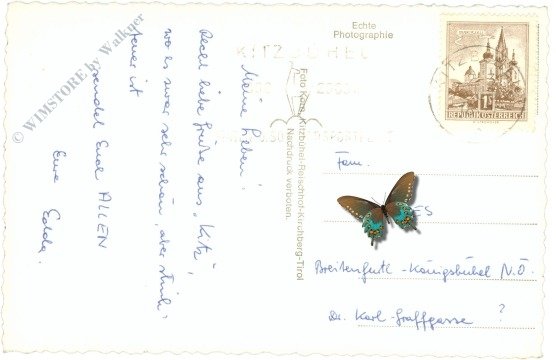 Meine Lieben!
Recht liebe Grüße aus „Kitz",
wo es zwar sehr schön, aber
teuer ist
sendet Euch ALLEN
Eure
Edda.
© WIMSTORE by Walkner
Echte
Photographie
KITZBÜHEL
Foto Kitzbühel-Reischhof-Kirchberg-Tirol
Nachdruck verboten.
MARIAZELL
1S
REPUBLIK ÖSTERREICH
Fam.
ES
Breitenfurt-Königsbühel N.Ö.
Dr. Karl-Graffgasse ?